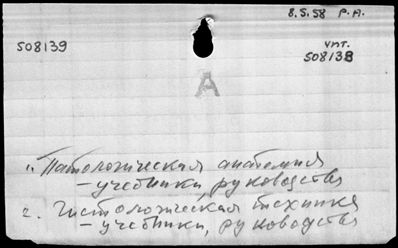 8.5.58 р.А.
508139 упт.
508139
А
1. Патологическая анатомия
– учебники, руководства
2. Гистологическая техника
– учебники, руководства